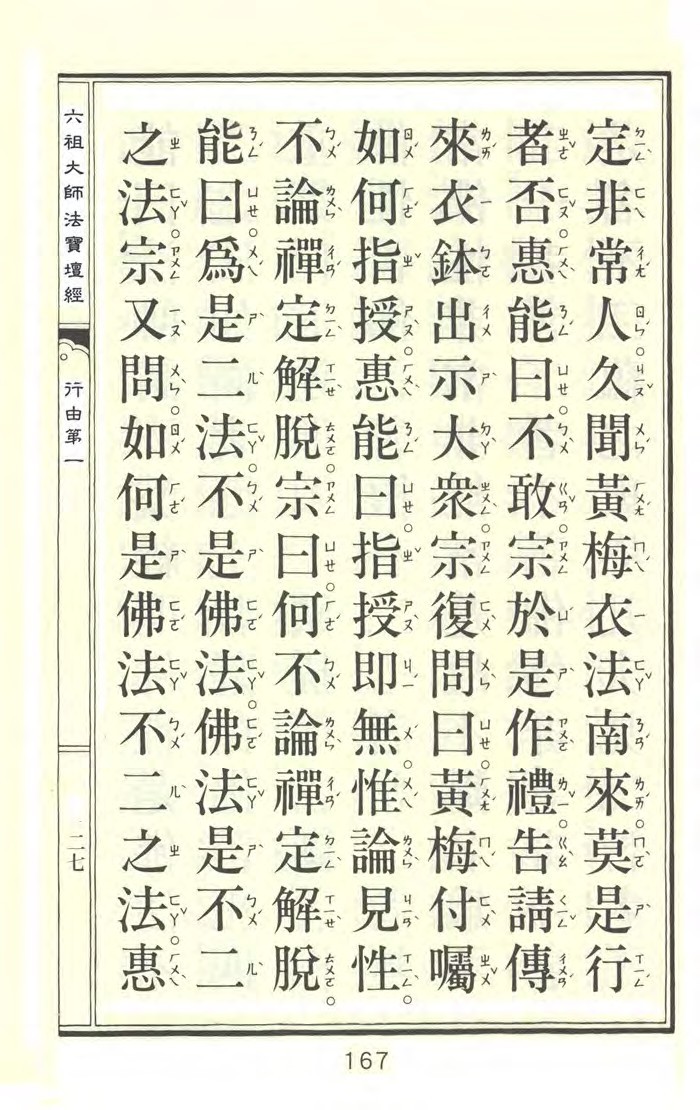 定非常人。久聞黃梅衣法南來。莫是行
者否。惠能曰。不敢。宗於是作禮。告請傳
來衣鉢出示大衆。宗復問曰。黃梅付囑
如何指授。惠能曰。指授即無。惟論見性。
不論禪定解脫。宗曰。何不論禪定解脫。
能曰。爲是二法。不是佛法。佛法是不二
之法。宗又問。如何是佛法不二之法。惠
六祖大師法寶壇經
行由第一
二七
167